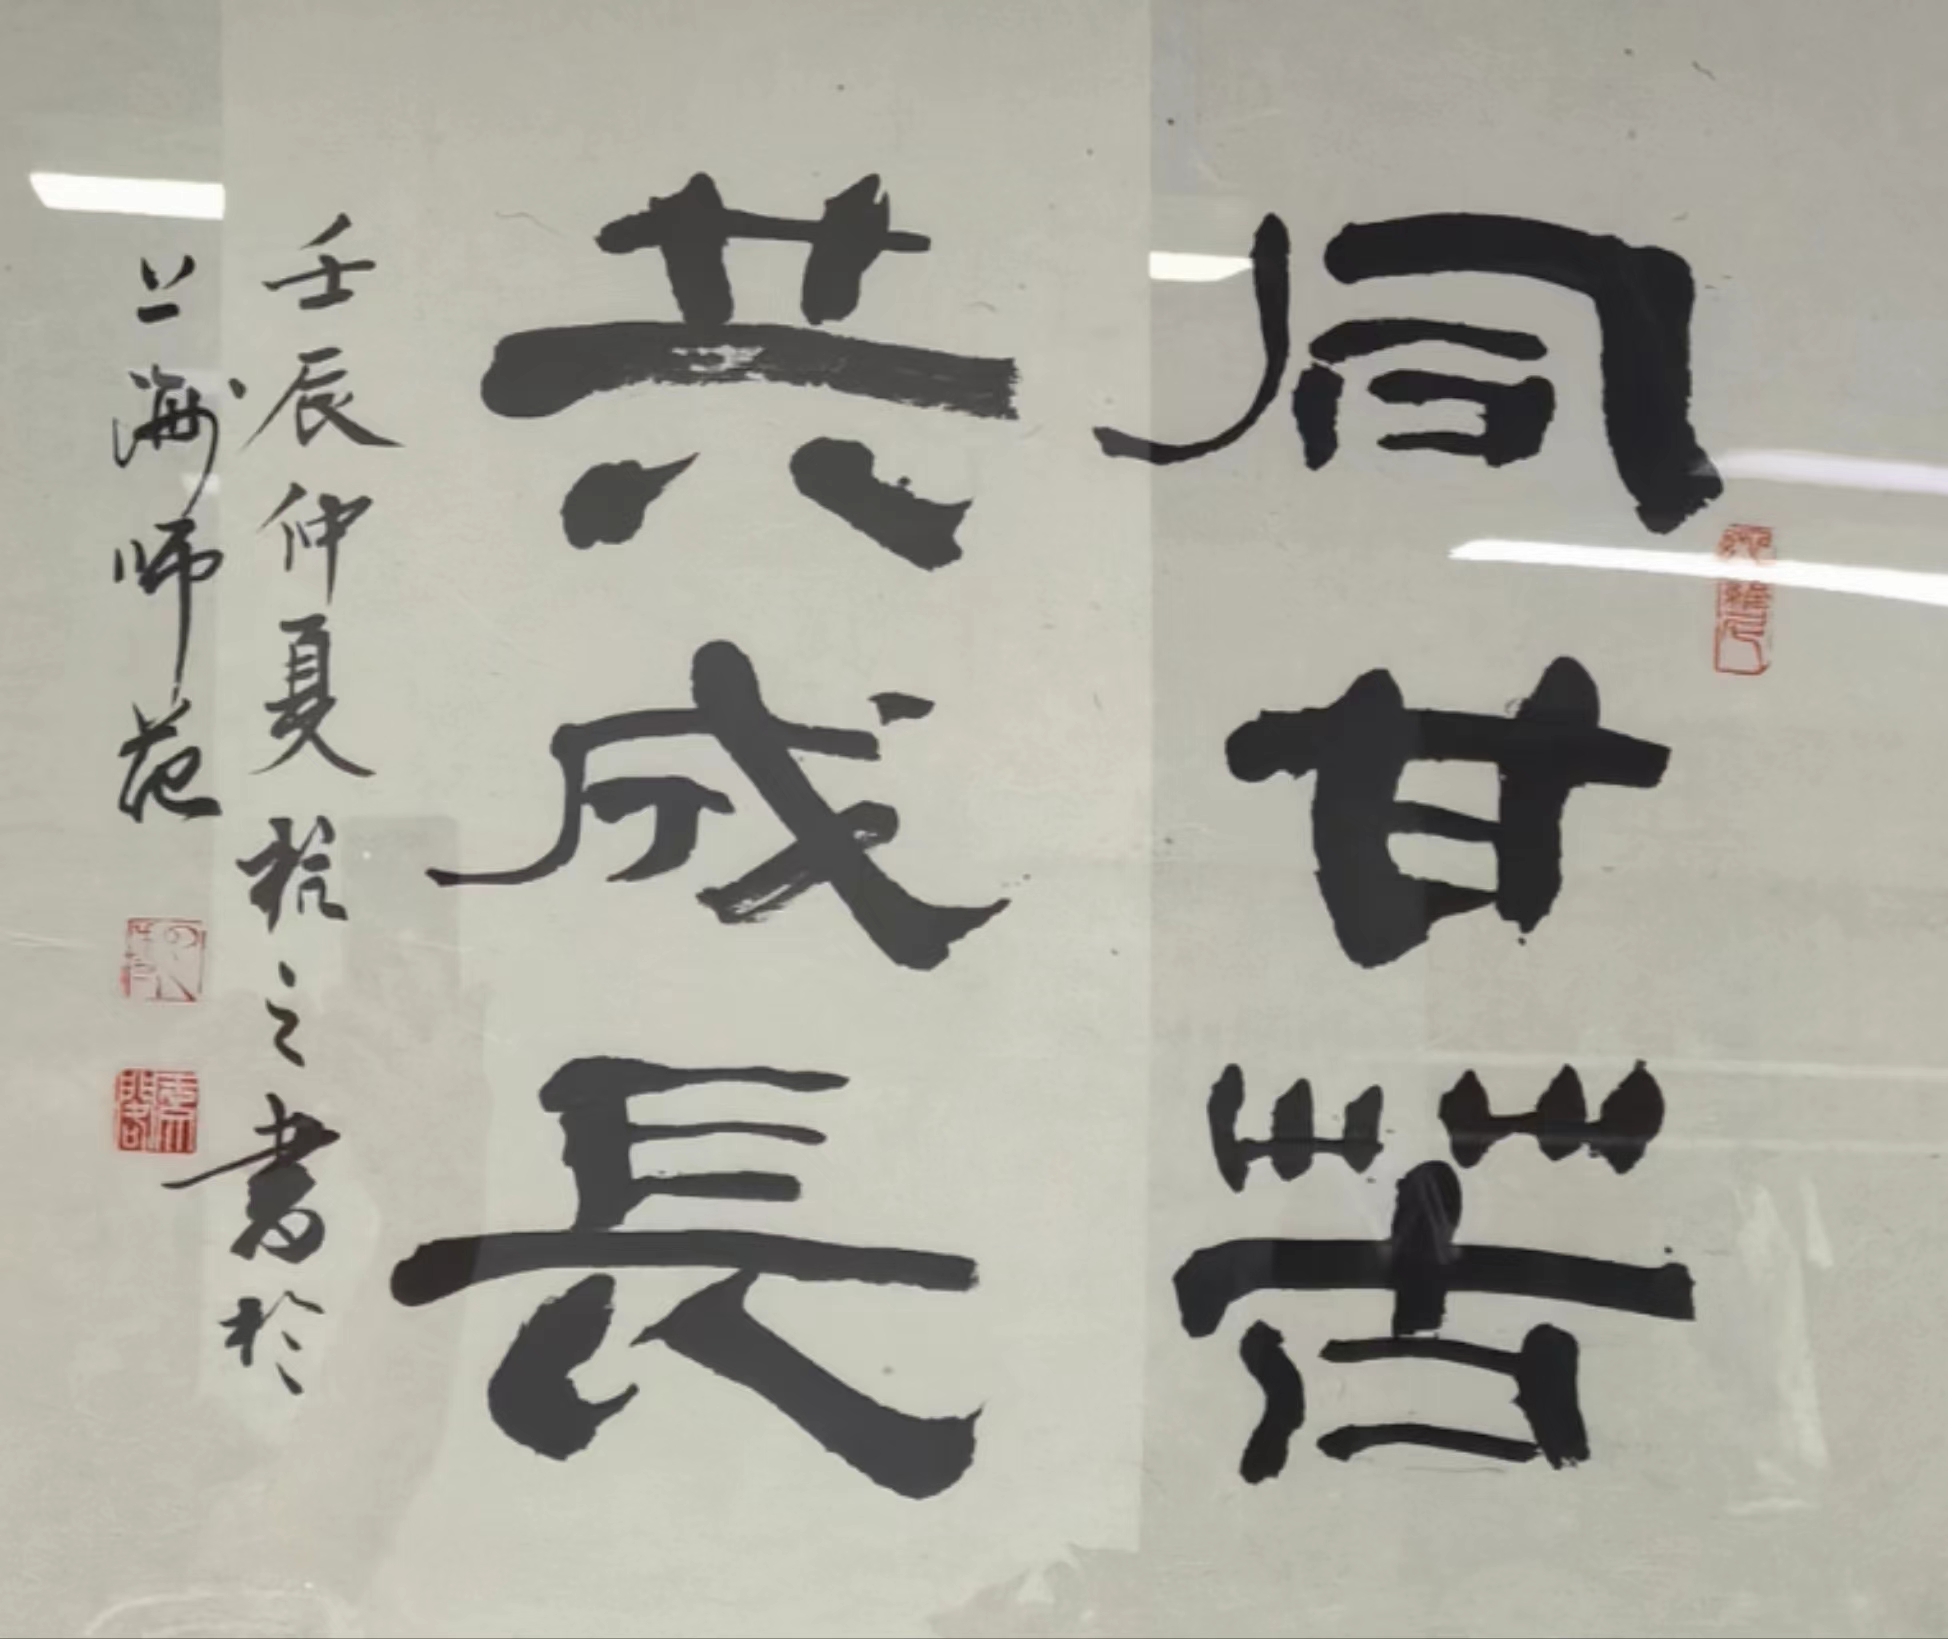 同甘苦
共成長
壬辰仲夏 之書於
上海师范